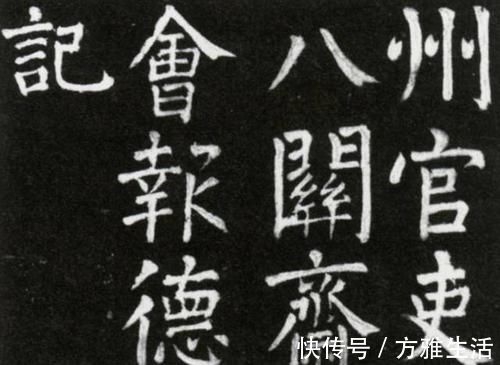 州官吏
八關齋
會報德
記
快传号/方雅生活